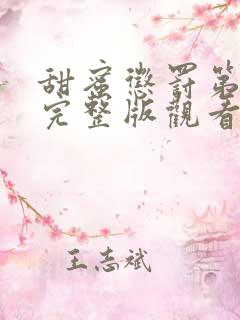 甜蜜懲罰第
完整版觀看
王志斌